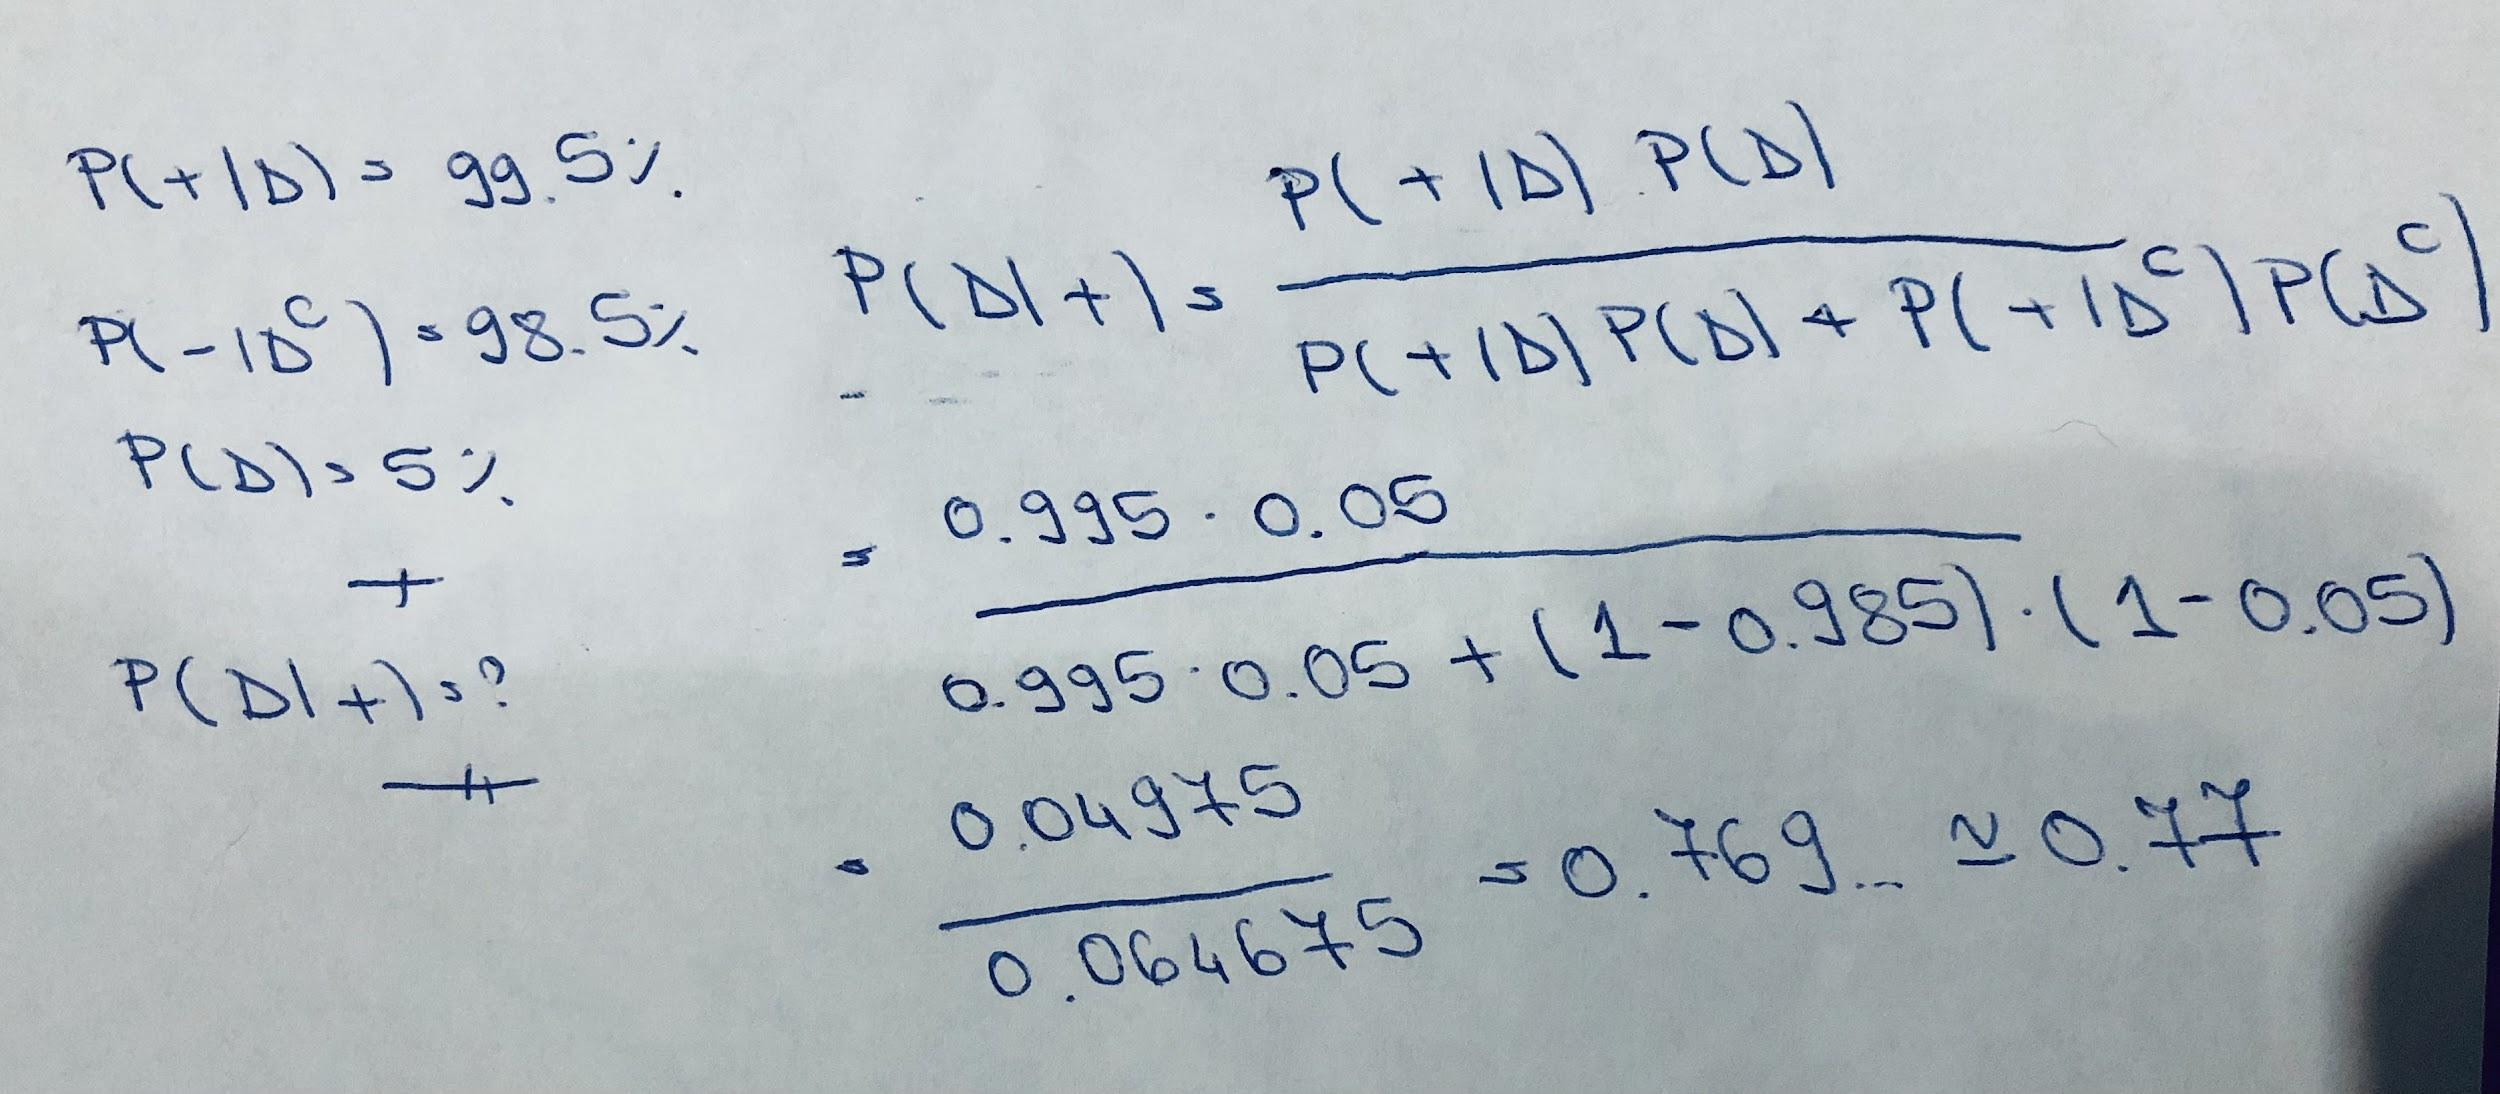 P(+|D) = 99.5%
P(-|Dᶜ) = 98.5%
P(D) = 5%
P(D|+) = ?
P(D|+) = P(+|D) . P(D)
P(+|D) P(D) + P(+|Dᶜ) P(Dᶜ)
= 0.995 . 0.05
0.995 . 0.05 + (1 - 0.985) . (1 - 0.05)
= 0.04975
0.064675
= 0.769... ≃ 0.77